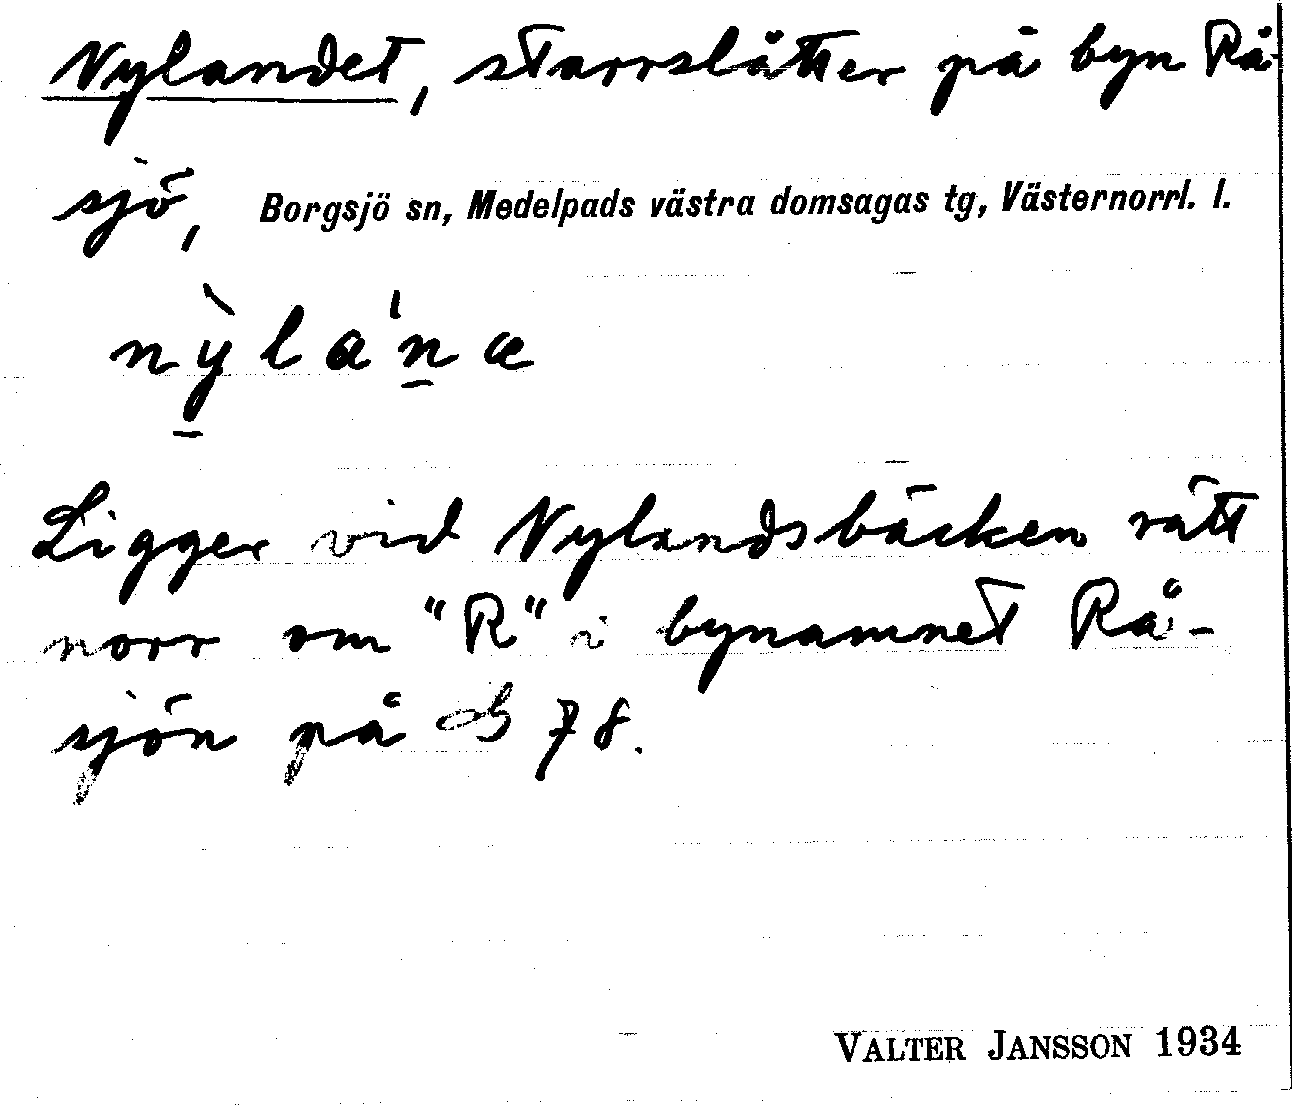 Nylandet, starrslåtter på byn Rå-
sjö, Borgsjö sn, Medelpads västra domsagas tg, Västernorrl. l.
nỳla'næ
Ligger vid Nylandsbäcken rätt
norr om "R" i bynamnet Rå-
sjön på 78.
VALTER JANSSON 1934